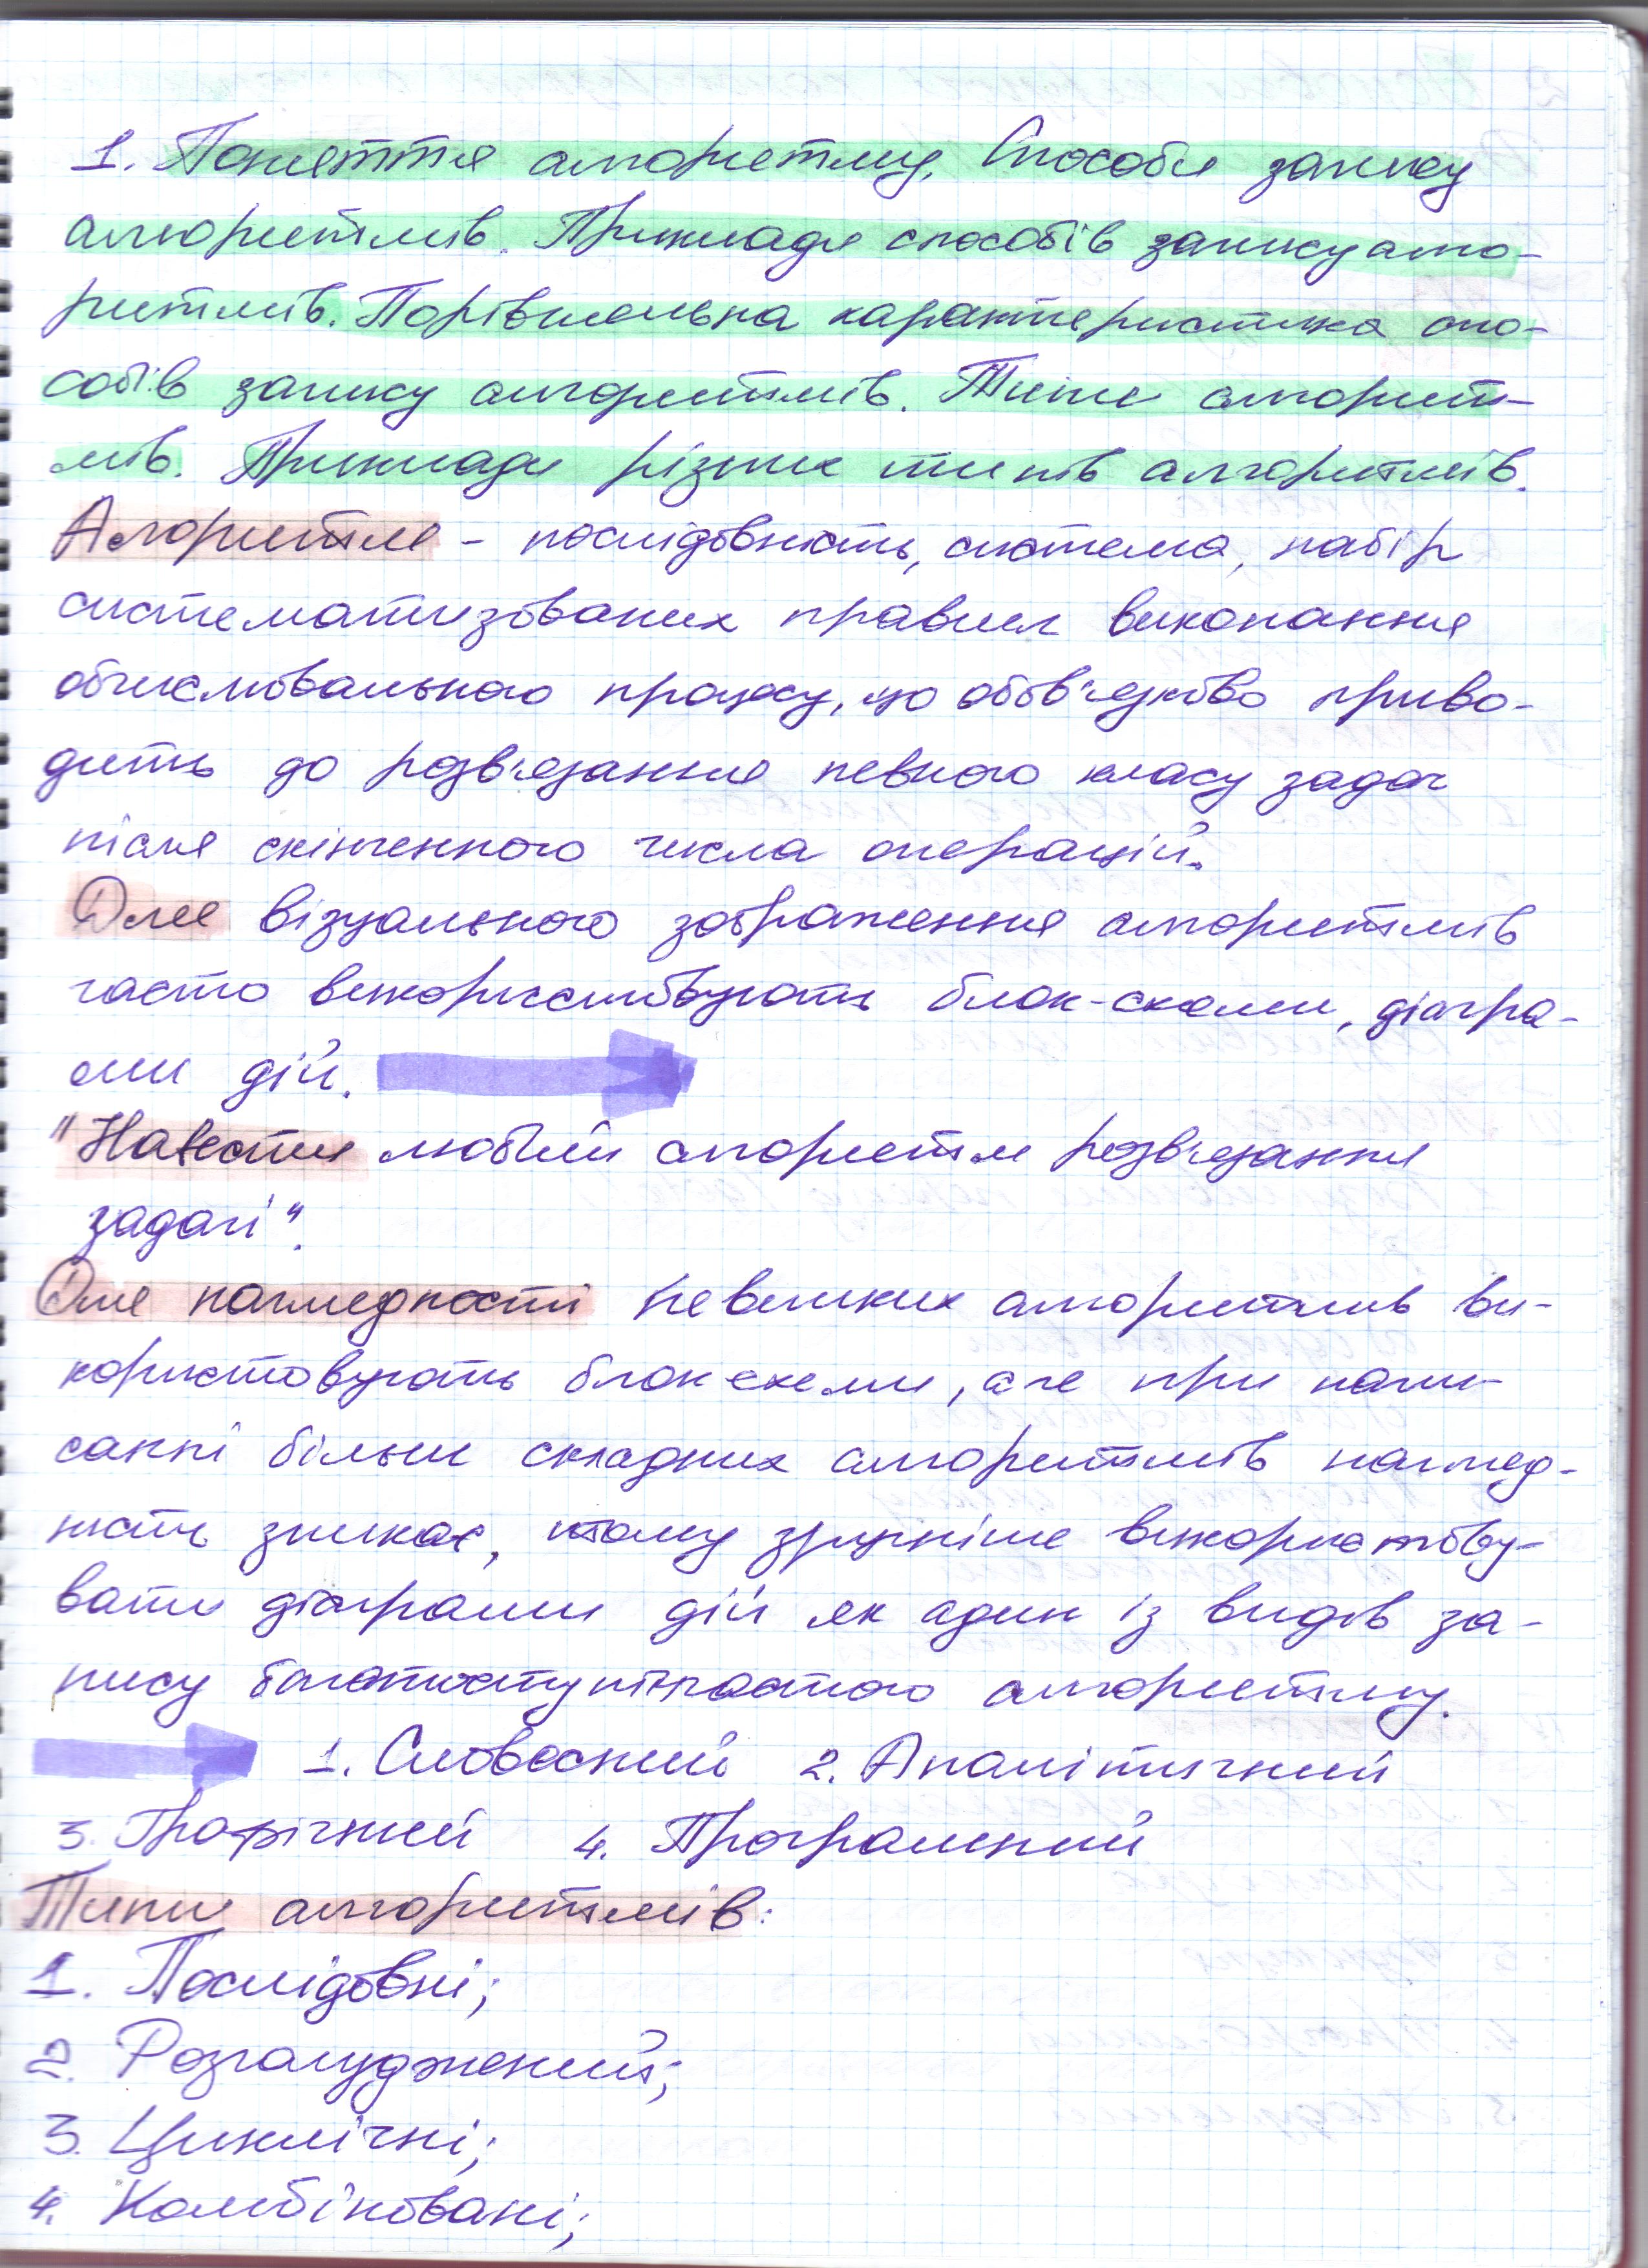 1. Поняття алгоритму. Способи запису
алгоритмів. Приклади способів запису алго-
ритмів. Порівняльна характеристика спо-
собів запису алгоритмів. Типи алгорит-
мів. Приклади різних типів алгоритмів.
Алгоритм - послідовність, система, набір
систематизованих правил виконання
обчислювального процесу, що обов'язково приво-
дить до розв'язання певного класу задач
після скінченного числа операцій.
Для візуального зображення алгоритмів
часто використовують блок-схеми, діагра-
ми дій.
"Навести любий алгоритм розв'язання
задачі".
Для наглядності невеликих алгоритмів ви-
користовують блоксхеми, але при напи-
санні більш складних алгоритмів нагляд-
ність зникає, тому зручніше використову-
вати діаграми дій як один із видів за-
пису багатоступінчастого алгоритму.
1. Словесний 2. Аналітичний
3. Графічний 4. Програмний
Типи алгоритмів:
1. Послідовні;
2. Розгалуджений;
3. Циклічні;
4. Комбіновані;